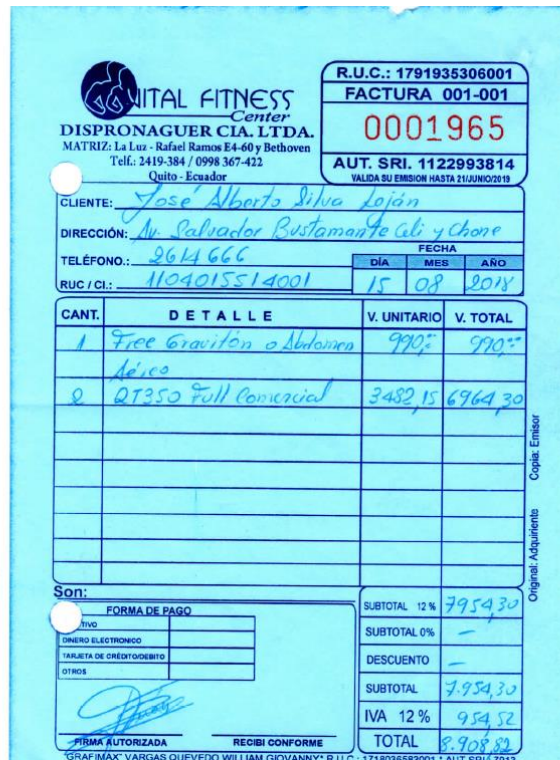 VITAL FITNESS
Center
DISPRONAGUER CIA. LTDA.
MATRIZ: La Luz - Rafael Ramos E4-60 y Bethoven
Telf.: 2419-384 / 0998 367-422
Quito - Ecuador
R.U.C.: 1791935306001
FACTURA 001-001
0001965
AUT. SRI. 1122993814
VALIDA SU EMISION HASTA 21/JUNIO/2019
CLIENTE: José Alberto Silva Loján
DIRECCIÓN: Av. Salvador Bustamante Celi y Chone
TELÉFONO.: 2614666
RUC / CI.: 1104015514001
FECHA
DÍA MES AÑO
15 08 2018
CANT. DETALLE V. UNITARIO V. TOTAL
1 Free Gravitón o Abdomen 990,00 990,00
Aéreo
2 QT350 Full Comercial 3482,15 6964,30
Original: Adquiriente Copia: Emisor
Son:
FORMA DE PAGO
TIVO
DINERO ELECTRONICO
TARJETA DE CRÉDITO/DEBITO
OTROS
FIRMA AUTORIZADA RECIBI CONFORME
SUBTOTAL 12 % 7954,30
SUBTOTAL 0% —
DESCUENTO —
SUBTOTAL 7.954,30
IVA 12 % 954,52
TOTAL 8.908,82
"GRAFIMAX" VARGAS QUEVEDO WILLIAM GIOVANNY* R.U.C.: 1718036583001 * AUT SRI: 7913